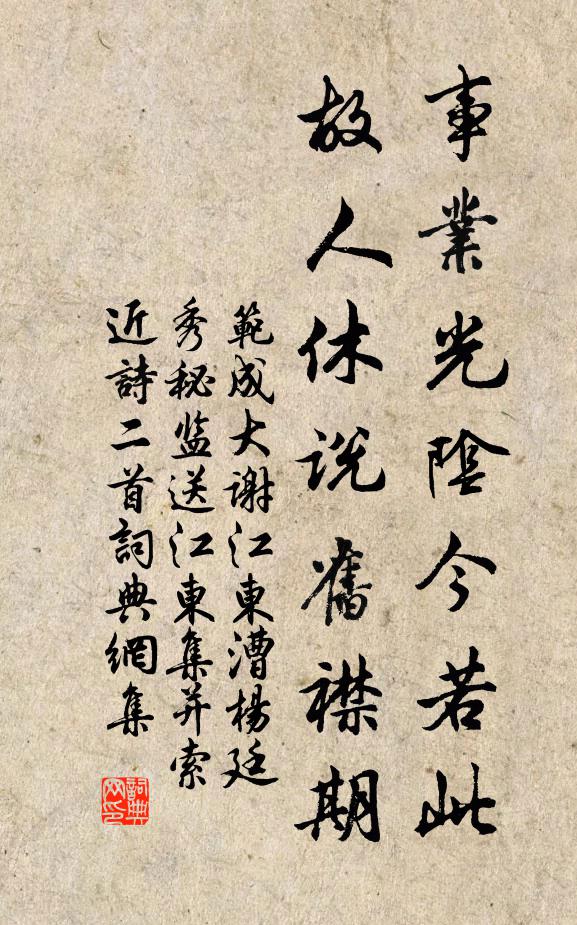 事業光陰今若此
故人休説舊襟期
範成大謝江東漕楊廷
秀秘监送江東集并索
近詩二首詞典網集
詞典
网印